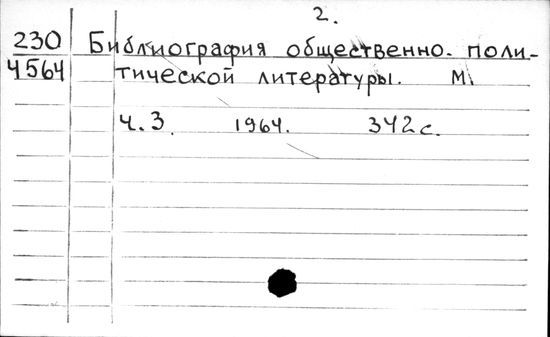 2.
230 Библиография общественно-поли-
4564 тической литературы. М.
ч.3. 1964. 342 с.